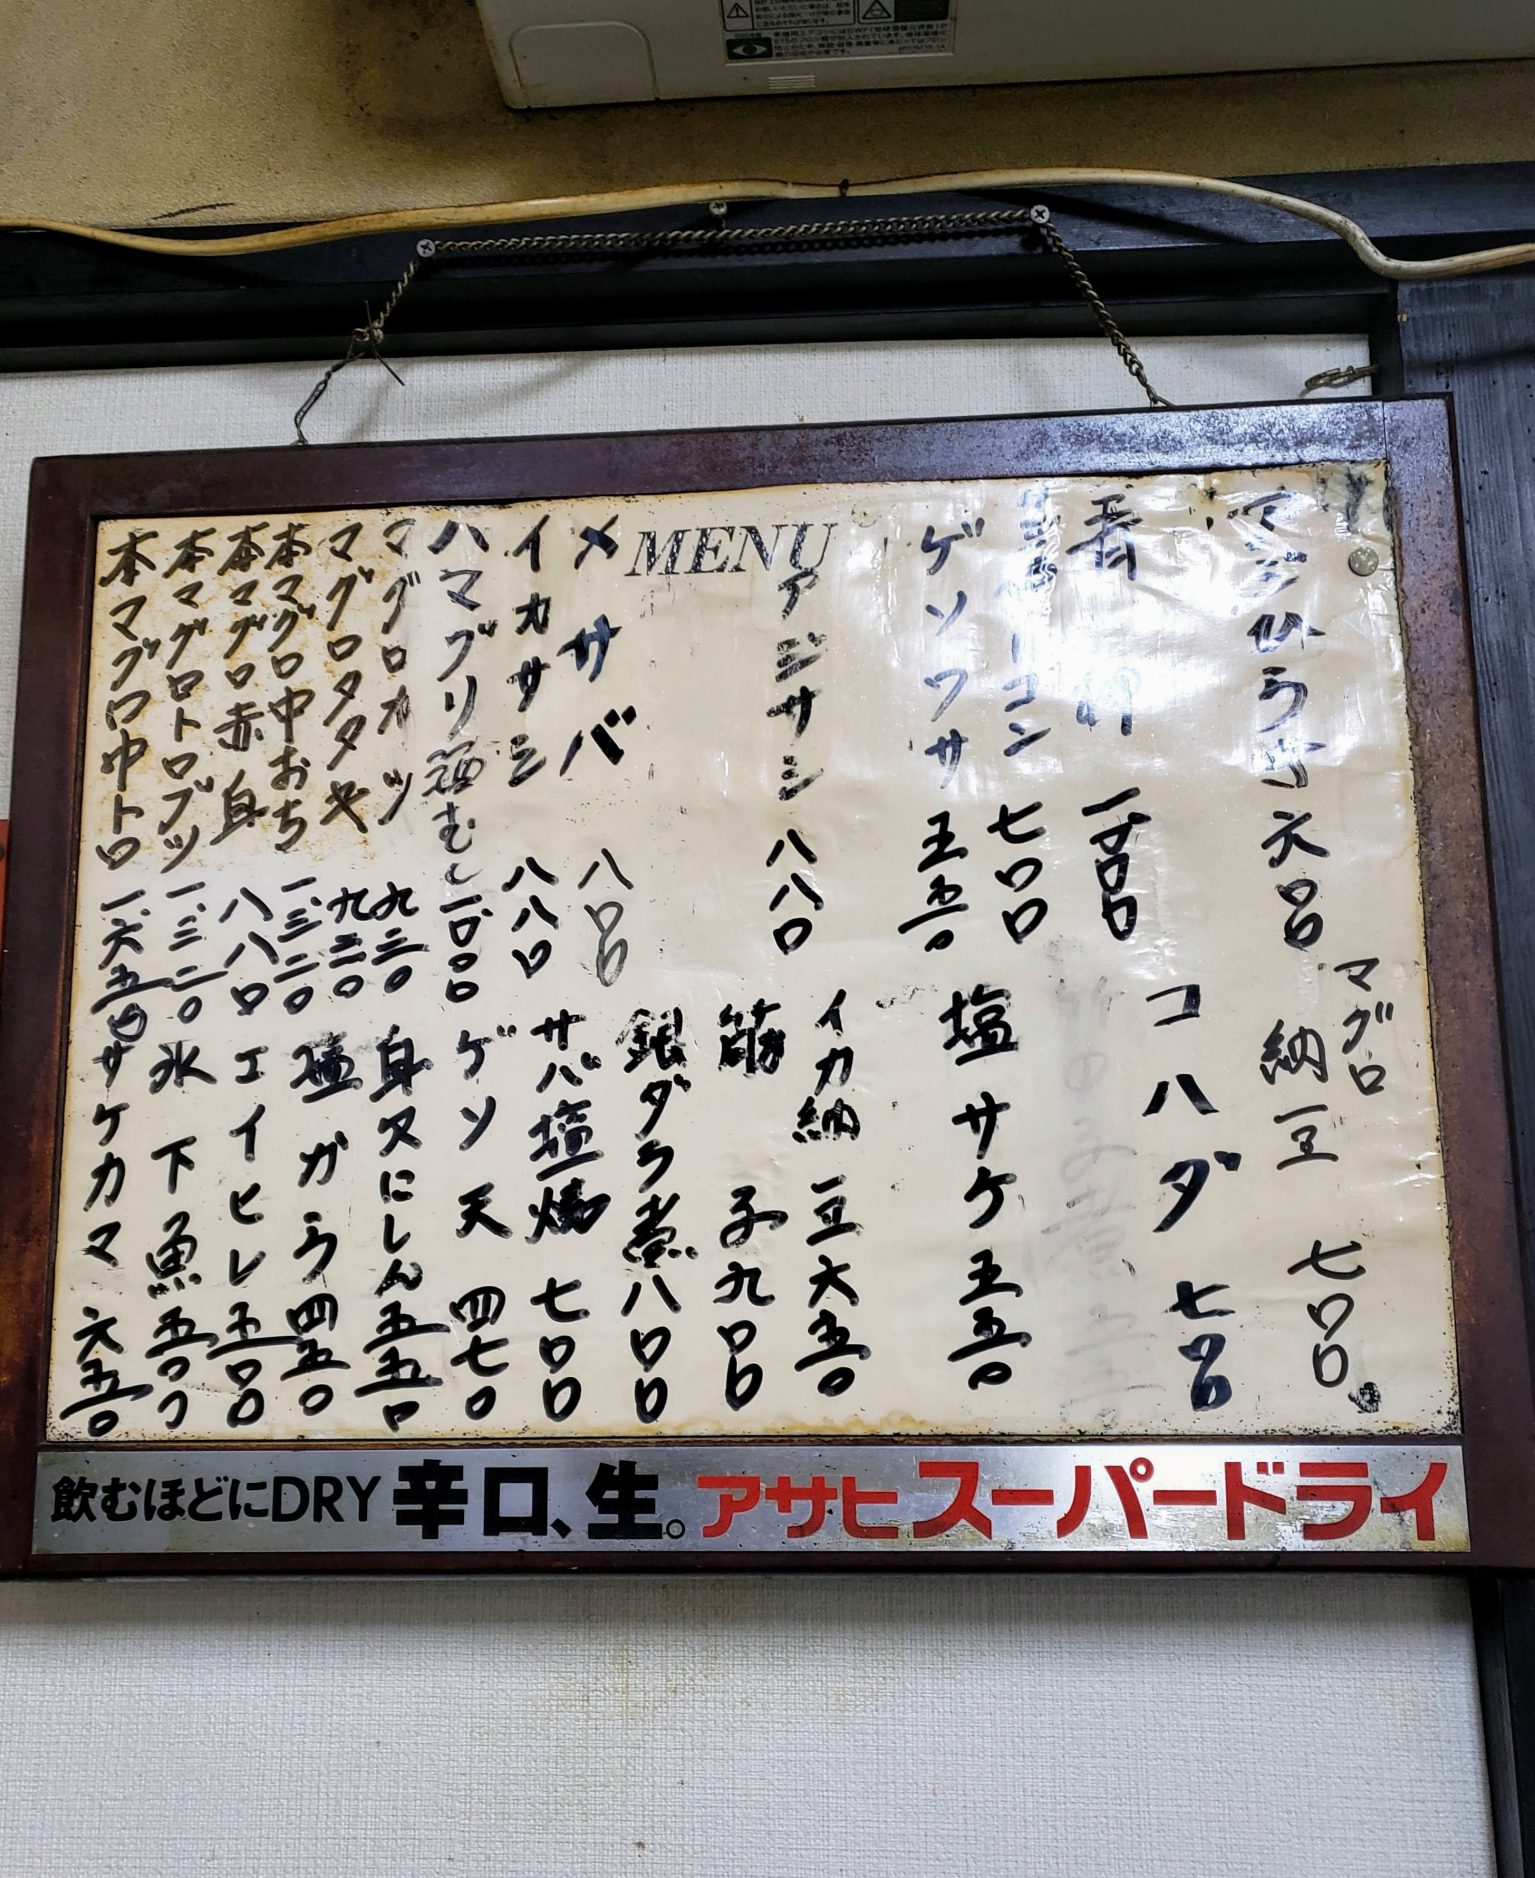 MENU
アジひらき 六百
七〇〇
ゲソワサ 五五〇
アジサシ 八八〇
メサバ 八〇〇
イカサシ 八八〇
ハマグリ酒むし 一、〇〇〇
マグロカツ 九二〇
マグロタタキ 九二〇
本マグロ中おち 一、三二〇
本マグロ赤身 八八〇
本マグロトロブツ 一、三二〇
本マグロ中トロ 一、六五〇
マグロ納豆 七〇〇
コハダ 七〇〇
塩サケ 五五〇
イカ納豆 六五〇
筋子 九〇〇
銀ダラ煮 八〇〇
サバ塩焼 七〇〇
ゲソ天 四七〇
身欠にしん 五五〇
塩から 四五〇
エイヒレ 五〇〇
氷下魚 五〇〇
サケカマ 六五〇
飲むほどにDRY 辛口、生。アサヒスーパードライ